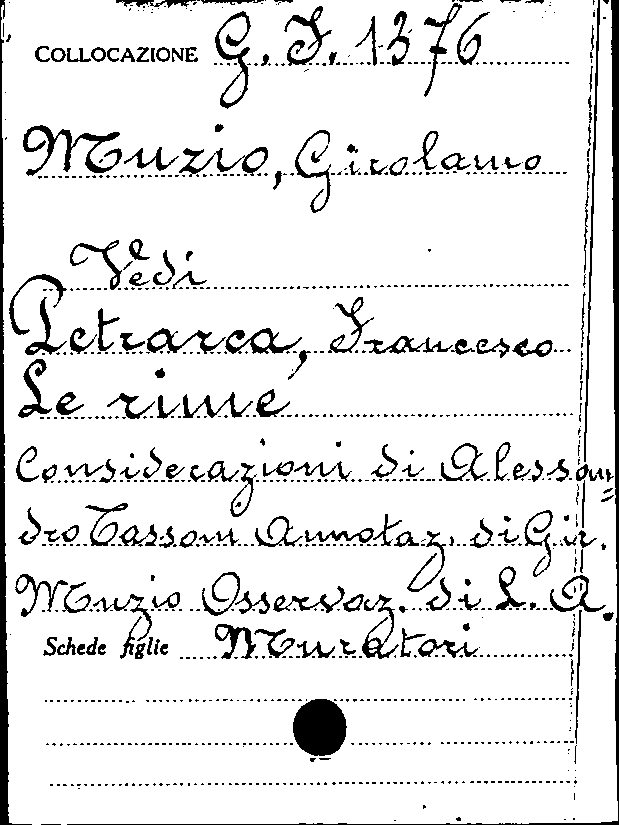 COLLOCAZIONE G. I. 1376
Muzio, Girolamo
Vedi
Petrarca, Francesco
Le rime
Considerazioni di Alessan=
dro Tassoni Annotaz. di Gir.
Muzio Osservaz. di L. A.
Schede figlie Muratori